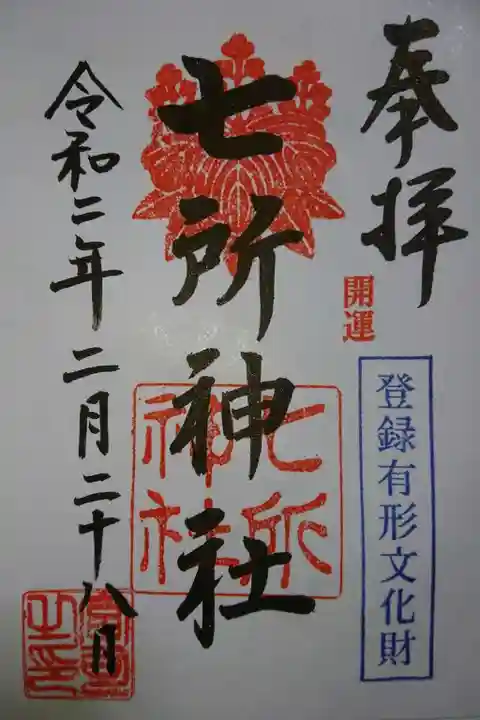 奉拝
開運
登録有形文化財
七所神社
七所
神社
令和二年二月二十八日
宮司
之印